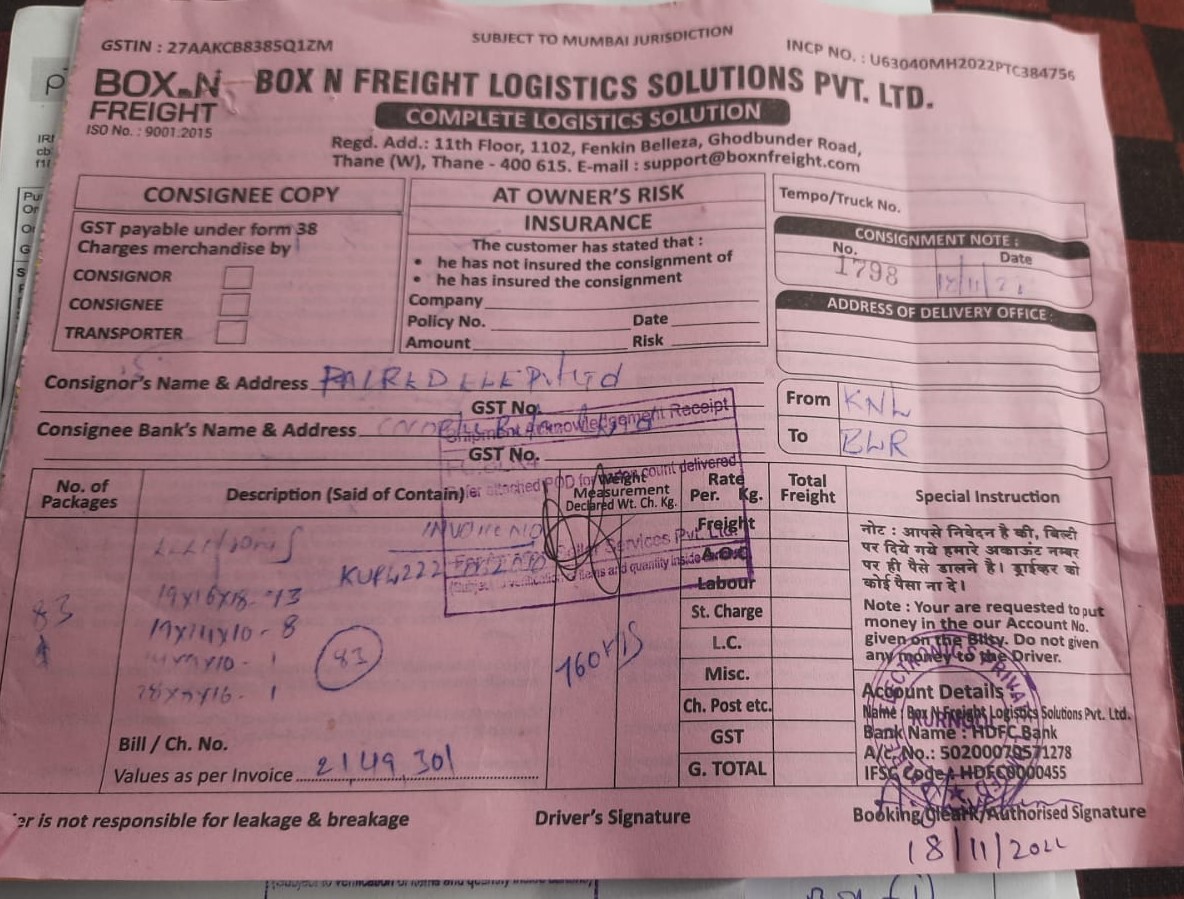 GSTIN : 27AAKCB8385Q1ZM
SUBJECT TO MUMBAI JURISDICTION
INCP NO. : U63040MH2022PTC384756
BOX N FREIGHT
ISO No. : 9001:2015
BOX N FREIGHT LOGISTICS SOLUTIONS PVT. LTD.
COMPLETE LOGISTICS SOLUTION
Regd. Add.: 11th Floor, 1102, Fenkin Belleza, Ghodbunder Road,
Thane (W), Thane - 400 615. E-mail : support@boxnfreight.com
CONSIGNEE COPY
GST payable under form 38
Charges merchandise by
CONSIGNOR
CONSIGNEE
TRANSPORTER
AT OWNER'S RISK
INSURANCE
The customer has stated that :
• he has not insured the consignment of
• he has insured the consignment
Company
Policy No. Date
Amount Risk
Tempo/Truck No.
CONSIGNMENT NOTE :
No. Date
1798 18/11/22
ADDRESS OF DELIVERY OFFICE :
Consignor's Name & Address
GST No.
Consignee Bank's Name & Address
GST No.
From KNL
To BLR
Shipment Acknowledgement Receipt
attached POD for count delivered
Services Pvt. Ltd.
items and quantity inside
No. of Packages
Description (Said of Contain)
Weight Measurement
Declared Wt. Ch. Kg.
Rate Per. Kg.
Total Freight
Special Instruction
INVOICE NO
83
19x16x18 - 13
19x14x10 - 8
83
760
Freight
A.O.C
Labour
St. Charge
L.C.
Misc.
Ch. Post etc.
GST
G. TOTAL
नोट : आपसे निवेदन है की, बिल्टी
पर दिये गये हमारे अकाऊंट नम्बर
पर ही पैसे डालने है। ड्राईव्हर को
कोई पैसा ना दे।
Note : Your are requested to put
money in the our Account No.
given on the Bilty. Do not given
any money to the Driver.
Account Details
Name : Box N Freight Logistics Solutions Pvt. Ltd.
Bank Name : HDFC Bank
A/c. No.: 50200070571278
IFSC Code : HDFC0000455
KURNOOL
Bill / Ch. No.
Values as per Invoice 2149,301
er is not responsible for leakage & breakage
Driver's Signature
Booking Cleark/Authorised Signature
18/11/2022